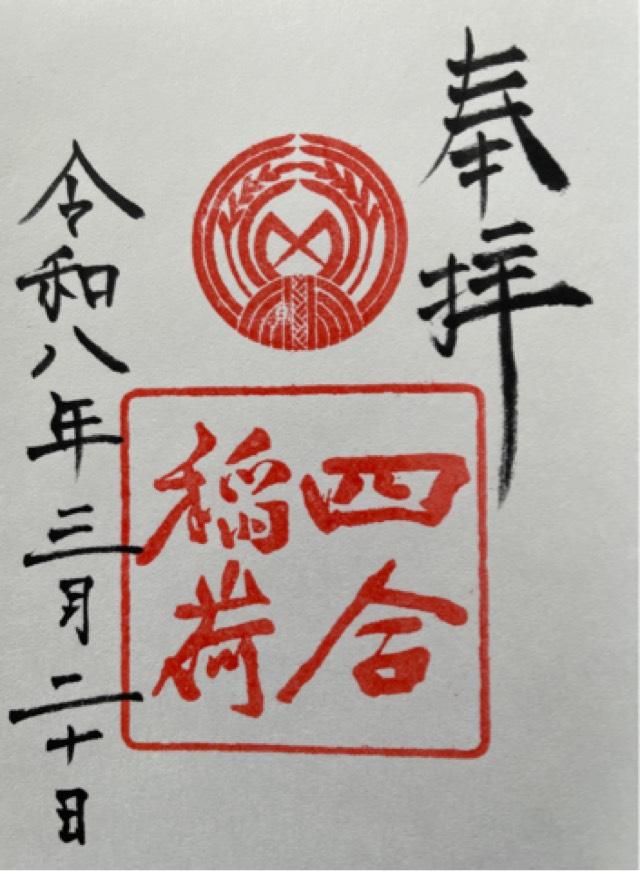 奉拝
四合
稲荷
令和八年三月二十日